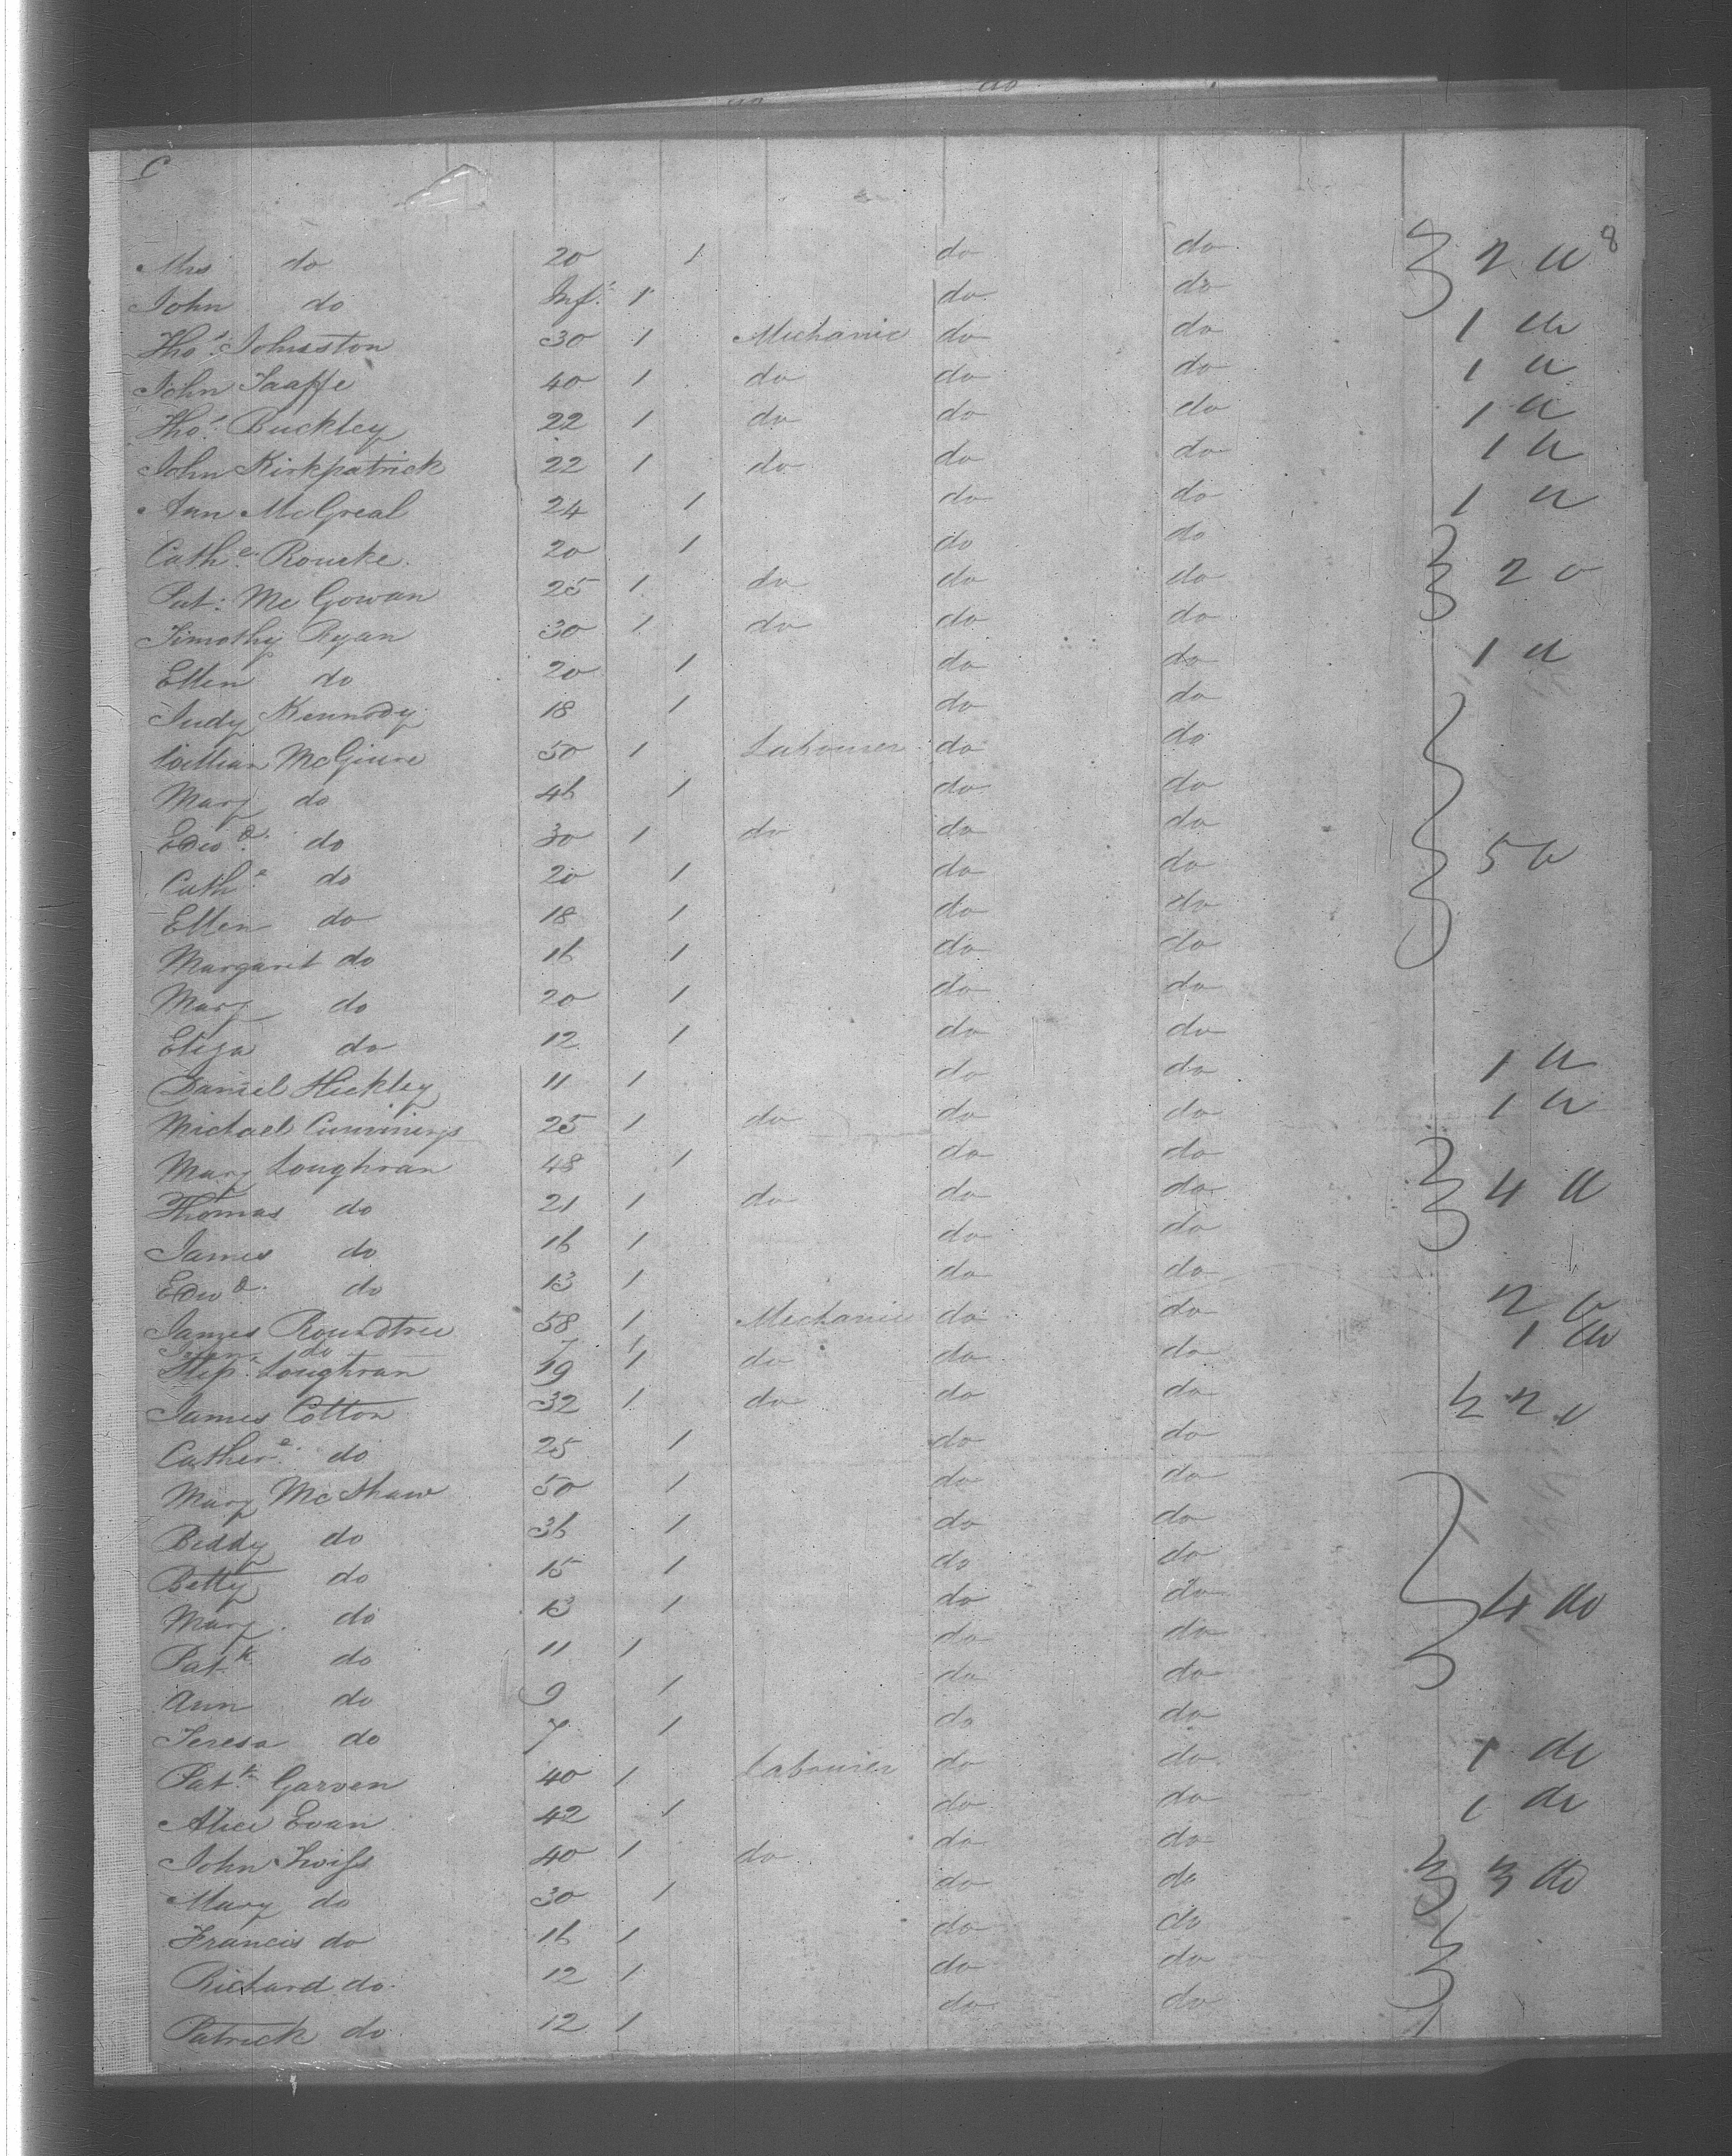 C
8
Mrs do 20 1 do do 2 a
John do Inf.t 1 do do
Tho.s Johnston 30 1 Mechanic do do 1 do
John Taaffe 40 1 do do do 1 a
Tho.s Buckley 22 1 do do do 1 a
John Kirkpatrick 22 1 do do do 1 a
Ann McGreal 24 1 do do 1 a
Cath.e Rourke 20 1 do do
Pat: McGowan 25 1 do do do 2
Timothy Ryan 30 1 do do do
Ellen do 20 1 do do 1 a
Judy Kennedy 18 1 do do
William McGuire 50 1 Labourer do do
Mary do 46 1 do do
Edw.d do 30 1 do do do 5
Cath.e do 20 1 do do
Ellen do 18 1 do do
Margaret do 16 1 do do
Mary do 20 1 do do
Eliza do 12 1 do do
Daniel Hickley 11 1 do do 1 a
Michael Cummings 25 1 do do do 1 a
Mary Loughran 48 1 do do
Thomas do 21 1 do do do 4 a
James do 16 1 do do
Edw.d do 13 1 do do
James Roundtree 58 1 Mechanic do do 2
do 7 1 1 do
Step.n Loughran 19 1 do do do
James Cotton 32 1 do do do 2
Cather.e do 25 1 do do
Mary McShaw 50 1 do do
Biddy do 36 1 do do
Betty do 15 1 do do
Mary do 13 1 do do 4 do
Pat.k do 11 1 do do
Ann do 9 1 do do
Teresa do 7 1 do do
Pat.k Garven 40 1 Labourer do do 1 do
Alice Evan 42 1 do do 1 do
John Swifs 40 1 do do do
Mary do 30 1 do do 3 do
Francis do 16 1 do do
Richard do 12 1 do do
Patrick do 12 1 do do